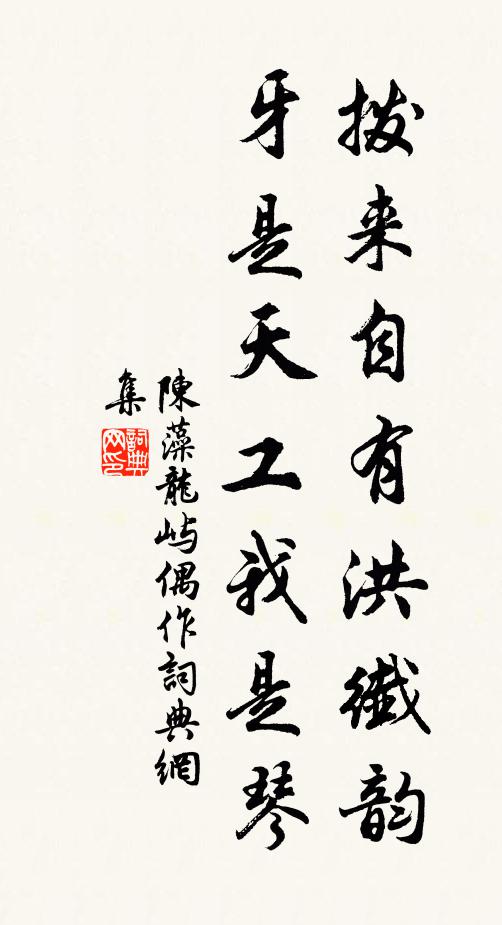 拨来自有洪纖韵
牙是天工我是琴
陳藻龍屿偶作詞典網
集
詞典
网印